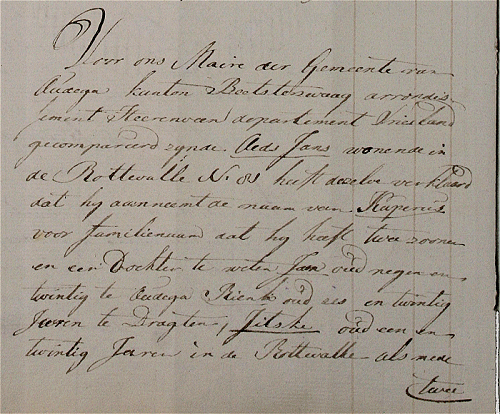 Voor ons Maire der Gemeente van
Oudega kanton Beetsterzwaag arrondis-
sement Heerenveen departement Vriesland
gecompareerd zijnde Aeds Jans wonende in
de Rottevalle No 81 heeft dezelve verklaard
dat hij aanneemt de naam van Kaperus
voor familienaam dat hij heeft twee zoonen
en een Dochter te weten Jan oud negen en
twintig te Oudega Rienk oud zes en twintig
Jaren te Dragten, Jitske oud een en
twintig Jaren in de Rottevalle als mede
twee